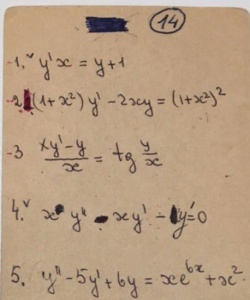 14
1. y'x = y+1
2. (1+x²)y' - 2xy = (1+x²)²
3 (xy'-y)/x = tg y/x
4. x y'' - xy' - y' = 0
5. y'' - 5y' + 6y = xe^{6x} + x²